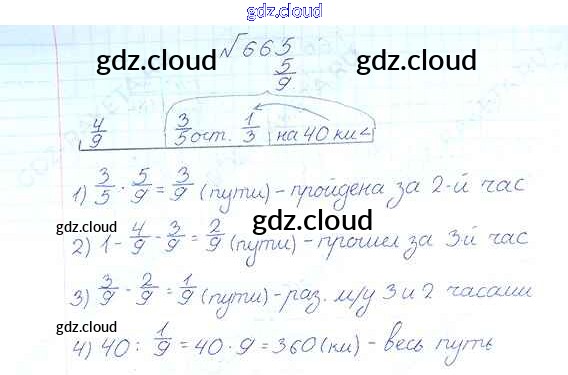 gdz.cloud
√665
gdz.cloud gdz.cloud
5/9
4/9 3/5 ост. 1/3 на 40 км<
1) 3/5 · 5/9 = 3/9 (пути) - пройдена за 2-й час
gdz.cloud gdz.cloud
2) 1 - 4/9 - 3/9 = 2/9 (пути) - прошел за 3-й час
3) 3/9 - 2/9 = 1/9 (пути) - раз. м/у 3 и 2 часами
gdz.cloud
4) 40 : 1/9 = 40 · 9 = 360 (км) - весь путь